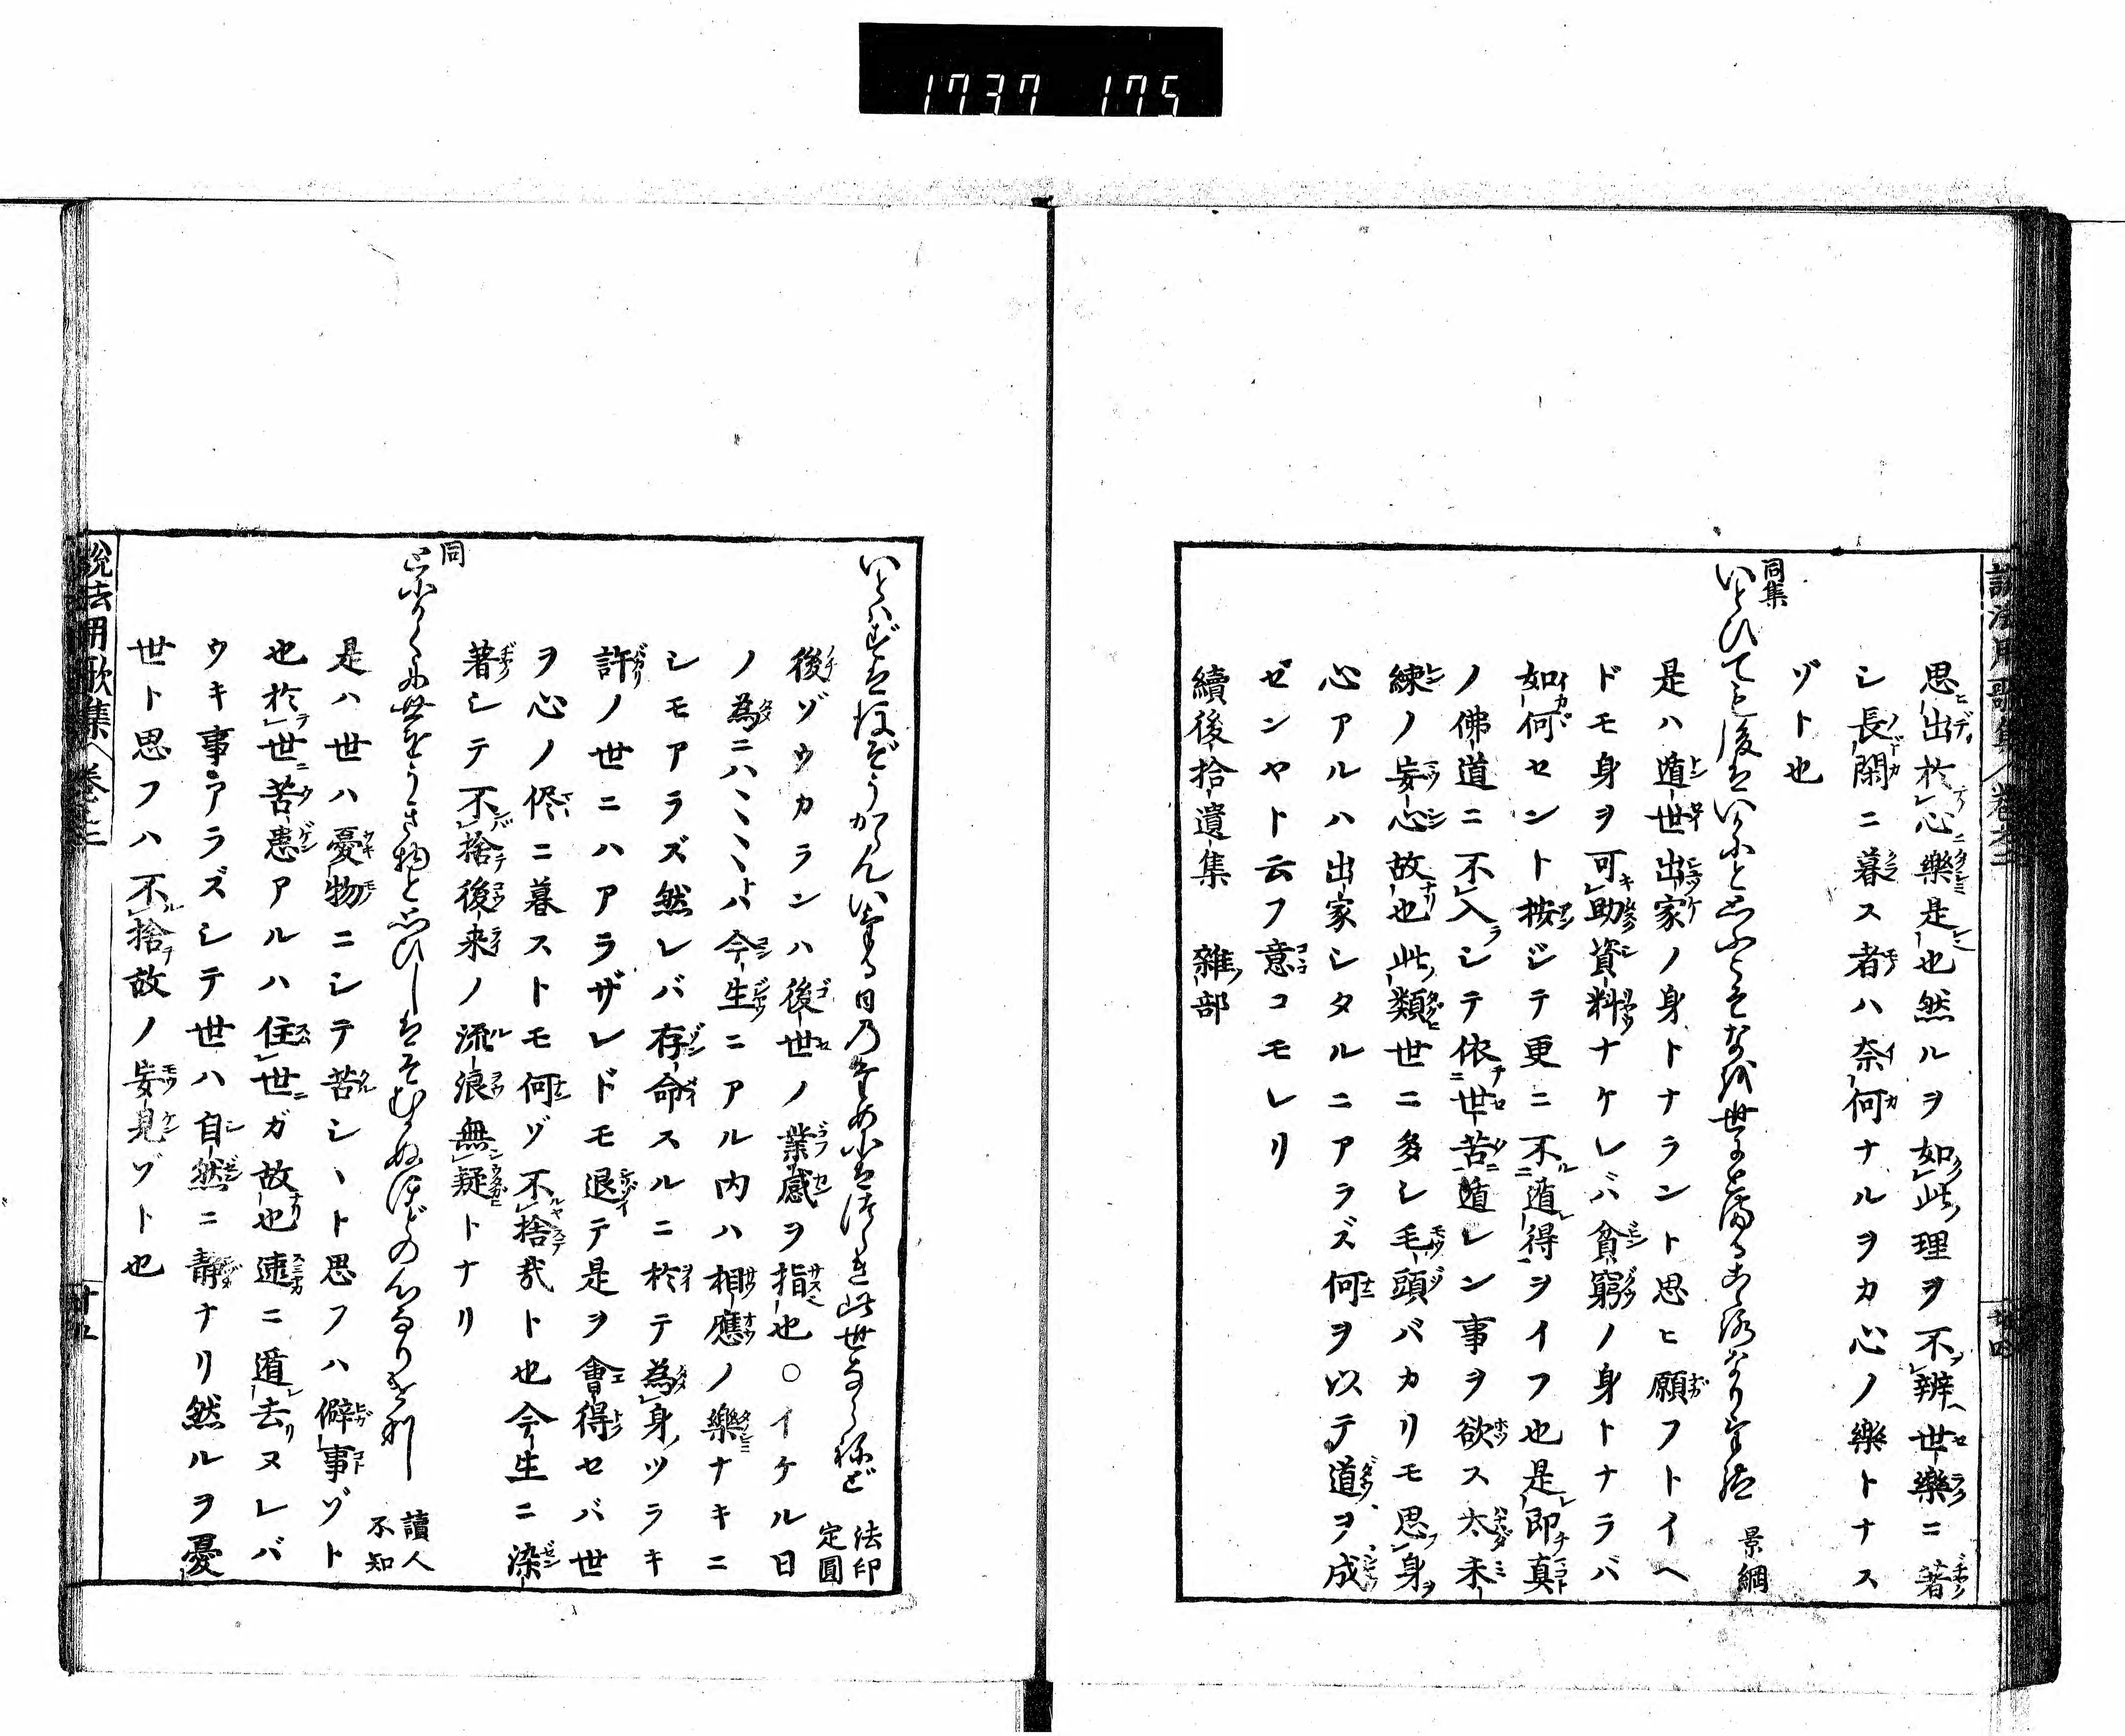 1737 175
思出於心樂是也然ルヲ如此理ヲ不辨世樂ニ著
シ長閑ニ暮ス者ハ奈何ナルヲカ心ノ樂トナス
ゾト也
同集
いとひても後をいかにと思ふこそなを世にとまるこゝろなりけれ 景綱
是ハ遁世出家ノ身トナラント思ヒ願フトイヘ
ドモ身ヲ可助資料ナケレバ貧窮ノ身トナラバ
如何セント按ジテ更ニ不遁得ヲイフ也是即真
ノ佛道ニ不入シテ依世苦遁レン事ヲ欲ス太未
練ノ妄心故也此類世ニ多シ毛頭バカリモ思身
心アルハ出家シタルニアラズ何ヲ以テ道ヲ成
ゼンヤト云フ意コモレリ
續後拾遺集 雜部
説法用歌集 卷之二
いとはずは後ぞうからんいける日のための
此世ならねど 法印定圓
後ゾウカランハ後世ノ業感ヲ指也○イケル日
ノ為ニハヽヽヽトハ今生ニアル内ハ相應ノ樂ナキニ
シモアラズ然レバ存命スルニ於テ為身ツラキ
許ノ世ニハアラザレドモ退テ是ヲ會得セバ世
ヲ心ノ侭ニ暮ストモ何ゾ不捨哉ト也今生ニ染
著シテ不捨後来ノ流浪無疑トナリ
同
とにかくに世をうき物と思ひしはそむかぬほどの心なりけり 讀人不知
是ハ世ハ憂物ニシテ苦シヽト思フハ僻事ゾト
也於世苦患アルハ住世ガ故也速ニ遁去ヌレバ
ウキ事アラズシテ世ハ自然ニ靜ナリ然ルヲ憂
世ト思フハ不捨故ノ妄見ゾト也
説法用歌集 卷之二 廿五